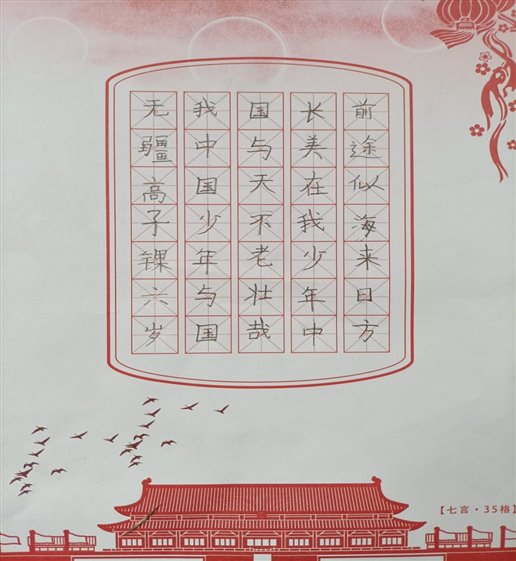 前途似海来日方
长美在我少年中
国与天不老壮哉
我中国少年与国
无疆高子锞六岁
【七言·35格】